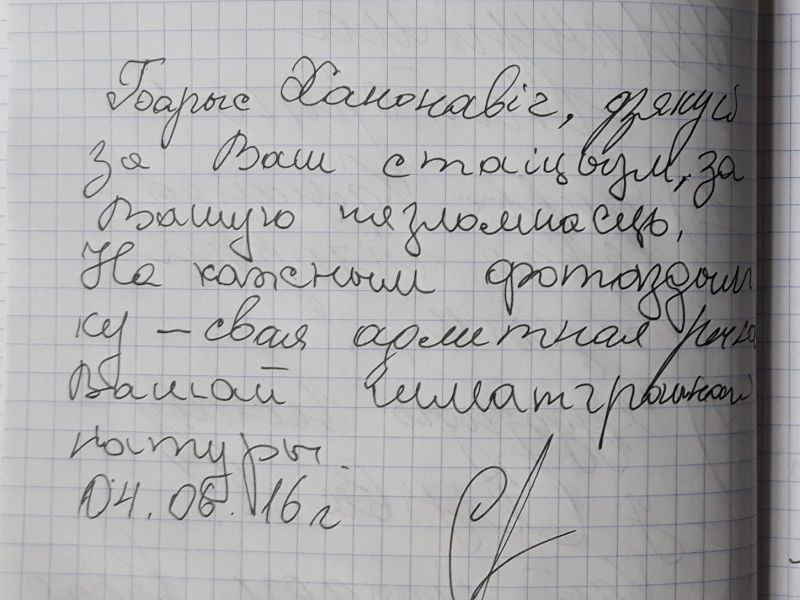 Барыс Ханонавіч, дзякуй
за Ваш стаіцызм, за
Вашую нязломнасць,
На кожным фотаздым
ку – свая адметная рыса
Вашай шматграннай
натуры.
04.06.16г